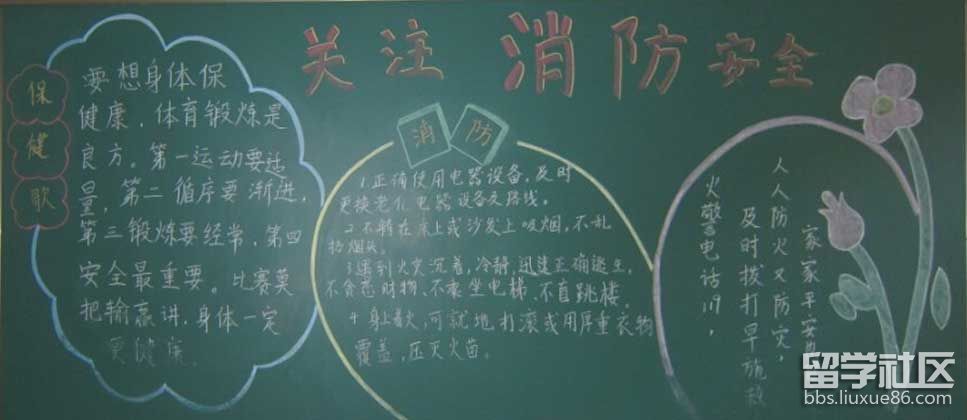 关注 消防安全
保健歌
要想身体保
健康，体育锻炼是
良方。第一运动要适
量，第二循序要渐进，
第三锻炼要经常，第四
安全最重要。比赛莫
把输赢讲，身体一定
更健康
消防
1.正确使用电器设备，及时
更换老化电器设备及路线。
2.不躺在床上或沙发上吸烟，不乱
扔烟头。
3.遇到火灾沉着，冷静，迅速正确逃生，
不贪恋财物、不乘坐电梯、不盲跳楼。
4.身上着火，可就地打滚或用厚重衣物
覆盖，压灭火苗。
火警电话119，
及时拨打早施救
人人防火又防灾，
家家平安
留学社区
bbs.liuxue86.com